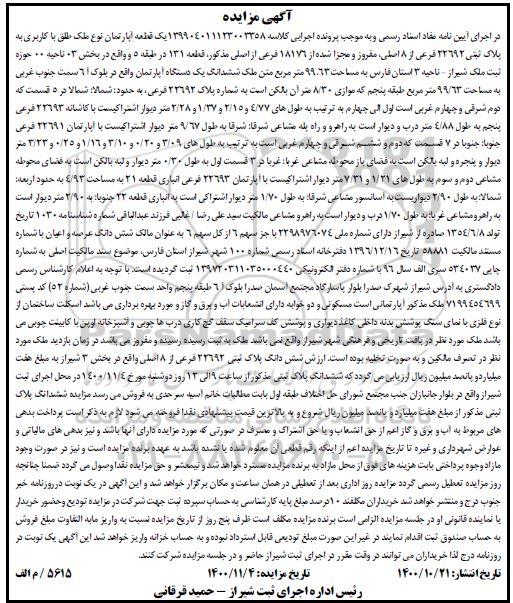 آگهی مزایده
در اجرای آیین نامه مفاد اسناد رسمی و به موجب پرونده اجرایی کلاسه ۱۳۹۹۰۴۰۱۱۱۲۳۰۰۳۳۵۸ یک قطعه آپارتمان نوع ملک طلق با کاربری به
پلاک ثبتی ۲۲۶۹۲ فرعی از ۸ اصلی، مفروز و مجزا شده از ۱۸۱۷۶ فرعی از اصلی مذکور، قطعه ۱۳۱ در طبقه ۵ و واقع در بخش ۰۳ ناحیه ۰۰ حوزه
ثبت ملک شیراز - ناحیه ۳ استان فارس به مساحت ۹۹.۶۳ متر مربع متن ملک ششدانگ یک دستگاه آپارتمان واقع در بلوک آ ۶ سمت جنوب غربی
به مساحت ۹۹/۶۳ متر مربع طبقه پنجم که موازی ۸/۳۰ متر آن بالکن است به شماره پلاک ۲۲۶۹۲ فرعی، به حدود: شمالا: شمالا در ۵ قسمت که
دوم شرقی و چهارم غربی است اول الی چهارم به ترتیب به طول های ۴/۷۷ و ۲/۱۵ و ۱/۳۷ و ۲/۲۸ متر دیوار اشتراکیست با کاشانه ۲۲۶۹۳ فرعی
پنجم به طول ۴/۸۸ متر درب و دیوار است به راهرو و راه پله مشاعی شرقا: شرقا به طول ۹/۶۷ متر دیوار اشتراکیست با آپارتمان ۲۲۶۹۱ فرعی
جنوبا: جنوبا در ۷ قسمت که دوم و ششم شرقی و چهارم غربی است به ترتیب به طول های ۳/۰۹ و ۰/۲۰ و ۳/۱۰ و ۱/۱۶ و ۰/۲۵ و ۳/۲۳ متر
دیوار و پنجره و لبه بالکن است به فضای باز محوطه مشاعی غربا: غربا در ۳ قسمت اول به طول ۰/۳۰ متر دیوار و لبه بالکن است به فضای محوطه
مشاعی دوم و سوم به طول های ۱/۲۱ و ۷/۳۱ متر دیوار اشتراکیست با آپارتمان ۲۲۶۹۳ فرعی انباری قطعه ۲۱ به مساحت ۴/۹۳ به حدود اربعه:
شمالا: به طول ۲/۹۰ دیواریست به آسانسور مشاعی شرقا: به طول ۱/۷۰ متر دیوار اشتراکی است به انباری قطعه ۲۲ جنوبا: به ۲/۹۰ متر دیوار است
به راهرو مشاعی غربا: به طول ۱/۷۰ درب و دیوار است به راهرو مشاعی مالکیت سید علی رضا / غالبی فرزند عبدالباقی شماره شناسنامه ۱۰۳۰ تاریخ
تولد ۱۳۵۴/۶/۸ صادره از شیراز دارای شماره ملی ۲۲۹۸۹۷۶۰۷۴ با جز سهم ۶ از کل سهم ۶ به عنوان مالک شش دانگ عرصه و اعیان با شماره
مستند مالکیت ۵۸۸۸۱ تاریخ ۱۳۹۶/۱۲/۱۶ دفترخانه اسناد رسمی شماره ۱۰۰ شهر شیراز استان فارس، موضوع سند مالکیت اصلی به شماره
چاپی ۵۳۴۰۳۷ سری الف سال ۹۶ با شماره دفتر الکترونیکی ۱۳۹۷۲۰۳۱۱۰۳۵۰۰۰۴۴۰ ثبت گردیده است. با توجه به اعلام کارشناس رسمی
دادگستری به آدرس شیراز شهرک صدرا بلوار پاسارگاد مجتمع آسمان صدرا بلوک آ ۶ طبقه پنجم واحد سمت جنوب غربی (شماره ۵۲) کد پستی
۷۱۹۹۴۵۴۶۹۹ ملک مذکور آپارتمانی است مسکونی و دو خوابه دارای انشعابات آب و برق و گاز و مورد بهره برداری می باشد اسکلت ساختمان از
نوع فلزی با نمای سنگ پوشش بدنه داخلی کاغذ دیواری و پوشش کف سرامیک سقف گچ کاری درب ها چوبی و آشپزخانه اوپن با کابینت چوبی می
باشد ملک مورد نظر در بافت تاریخی و فرهنگی شهر شیراز واقع نمی باشد ملک به ثبت رسیده و مفروز می باشد در زمان بازدید ملک مورد
نظر در تصرف مالکین و به صورت تخلیه بوده است. ارزش شش دانگ پلاک ثبتی ۲۲۶۹۲ فرعی از ۸ اصلی واقع در بخش ۳ شیراز به مبلغ هفت
میلیارد و پانصد میلیون ریال ارزیابی می گردد که ششدانگ پلاک ثبتی مذکور از ساعت ۹ الی ۱۲ روز دوشنبه مورخ ۱۴۰۰/۱۱/۴ در محل اجرای ثبت
شیراز واقع در بلوار جانبازان جنب مجتمع شورای حل اختلاف طبقه اول بابت مطالبات خانم آسیه سرحدی به فروش می رسد مزایده ششدانگ پلاک
ثبتی مذکور از مبلغ هفت میلیارد و پانصد میلیون ریال شروع و به بالاترین قیمت پیشنهادی نقدا فروخته می شود لازم به ذکر است پرداخت بدهی
های مربوط به آب و برق و گاز اعم از حق انشعاب و یا حق اشتراک و مصرف در صورتی که مورد مزایده دارای آنها باشد و نیز بدهی های مالیاتی و
عوارض شهرداری و غیره تا تاریخ مزایده اعم از اینکه رقم قطعی آن معلوم شده یا نشده باشد به عهده برنده مزایده است و نیز در صورت وجود
مازاد وجوه پرداختی بابت هزینه های فوق از محل مازاد به برنده مزایده مسترد خواهد شد و نیم عشر و حق مزایده نقدا وصول می گردد ضمنا چنانچه
روز مزایده تعطیل رسمی گردد مزایده روز اداری بعد از تعطیلی در همان ساعت و مکان برگزار خواهد شد و این آگهی در یک نوبت در روزنامه خبر
جنوب درج و منتشر خواهد شد خریداران مکلفند ۱۰ درصد مبلغ پایه کارشناسی به حساب سپرده ثبت جهت شرکت در مزایده تودیع و حضور خریدار
یا نماینده قانونی او در جلسه مزایده الزامی است برنده مزایده مکلف است ظرف پنج روز از تاریخ مزایده نسبت به واریز مابه التفاوت مبلغ فروش
به حساب صندوق ثبت اقدام نمایند در غیر این صورت مبلغ تودیعی قابل استرداد نبوده و به حساب خزانه واریز خواهد شد این آگهی یک نوبت در
روزنامه درج لذا خریداران می توانند در وقت مقرر در اجرای ثبت شیراز حاضر و در جلسه مزایده شرکت کنند.
تاریخ انتشار: ۱۴۰۰/۱۰/۲۱ تاریخ مزایده: ۱۴۰۰/۱۱/۴ ۵۶۱۵ / م الف
رئیس اداره اجرای ثبت شیراز – حمید قرقانی